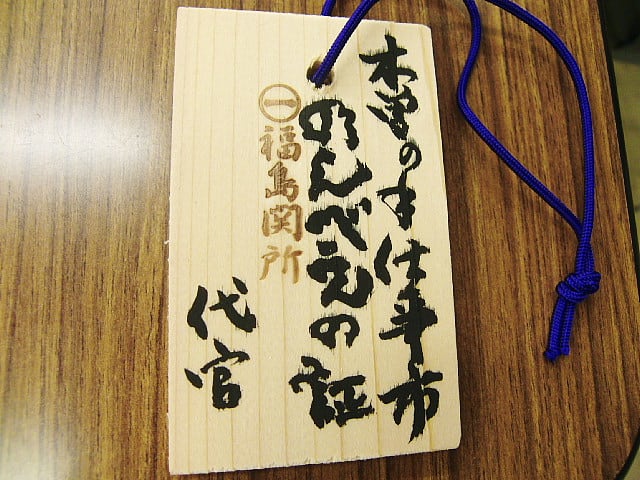 木曽の手仕事市
のんべえの証
㊀福島関所
代官